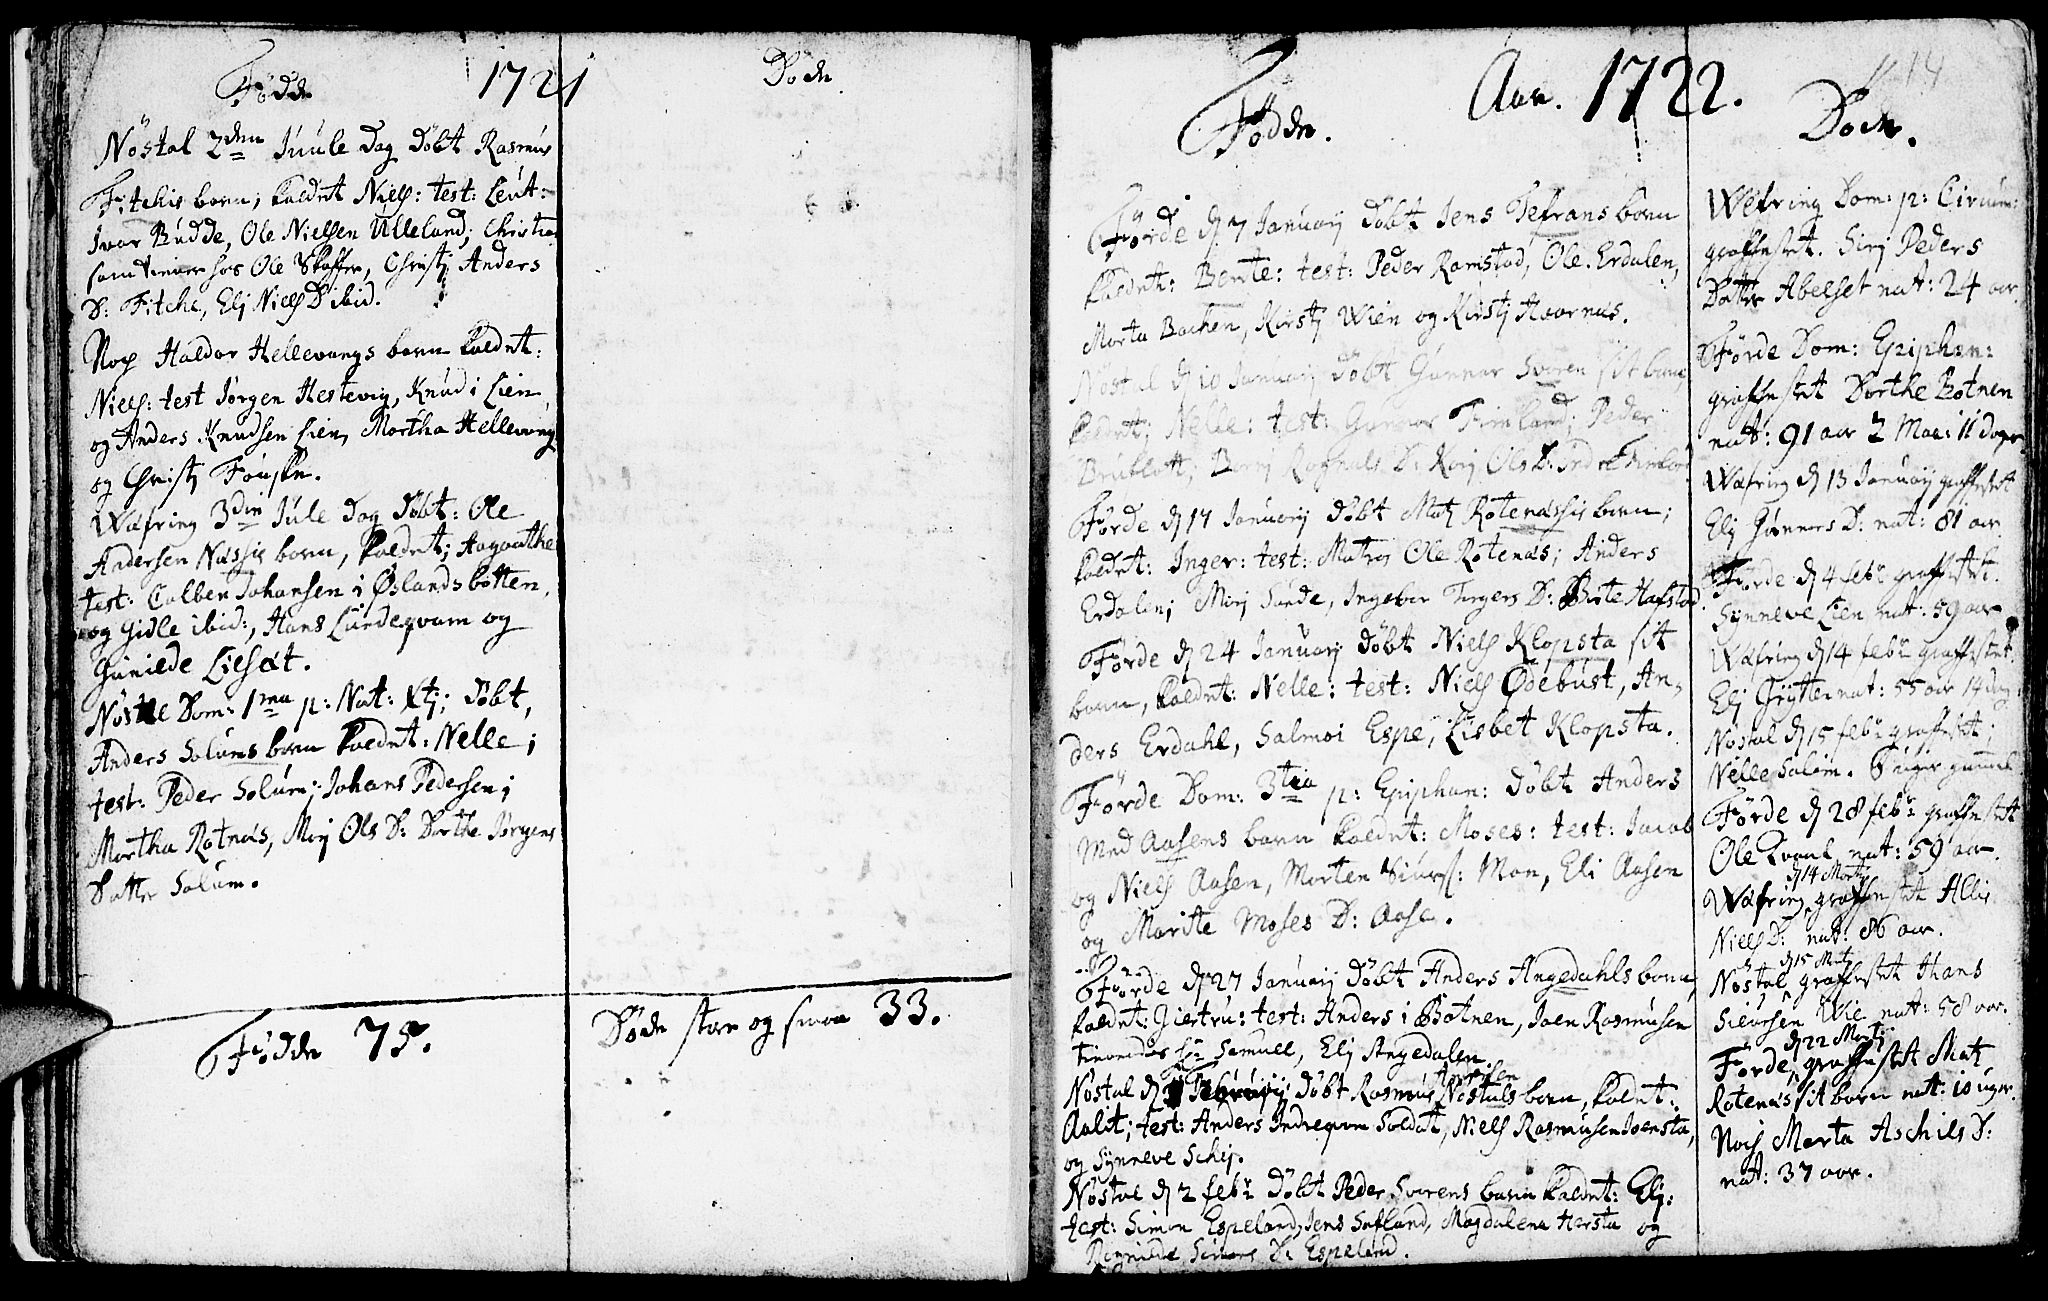 Födde 1721 Döde
Nöstal 2den Juule dag döbt Rasmus
Fitchis barn; kaldet Niels: test: Leut:
Ivar Budde, Ole Nielsen Ulleland, Christian
som tiener hos Ole Skaffer, Christj Anders
D: Fitche, Elj Niels D ibid.
Nog Haldor Hellevangs barn kaldet:
Niels: test Jørgen Hestevig, Knud i Lien
og Anders Knudsen Lien, Martha Hellevang
og Christj Fouske.
Wæfring 3die Jule dag döbt: Ole
Andersen Næssis barn, kaldet; Aagaathe
test: Colben Johansen i Øslandsbotten,
og Gidle ibid:, Hans Lundeqvam og
Gunilde Liesæt.
Nöstle Dom: 1ma p: Nat: Xtj; döbt,
Anders Solums barn kaldet: Nelle;
test: Peder Solum; Johans Pedersen;
Martha Rotnæs, Mirj Ols D: Dorthe Jørgens
Datter Solum.
Födde 75.
Döde store og smaa 33.
14
Aar. 1722.
Födde.
Förde d 7 Januarij döbt Jens Tefrans barn
kaldet: Berte: test: Peder Ramstad, Ole Erdalen,
Marta Bachen, Kirstj Wien og Kirstj Haarnæs.
Nöstal d 10 Januarij döbt Gunnar Svoren sit barn
kaldet; Nelle: test: Gunnar Fimland; Peder
Förde d 17 Januarij döbt Matz Rotenæssis barn;
kaldet: Inger: test: Matros Ole Rotenæs; Anders
Erdalen; Mirj Sunde, Ingebor Torgers D: Brite Hafstad.
Förde d 24 Januarij döbt Niels Klopsta sit
barn, kaldet: Nelle: test: Niels Ødebust, An,
ders Erdahl, Salmoi Espe, Lisbet Klopsta.
Förde Dom: 3tia p: Epiphan: döbt Anders
Aasens barn kaldet: Moses: test: Jacob
og Niels Aasen, Morten Siurs: Mon, Eli Aasen
og Marite Moses D: Aase.
Förde d 27 Januarij döbt Anders Angedahls barn
kaldet: Giertru: test: Anders i Botnen, Joen Rasmusen
tienendes hos Samuel, Elj Angedalen
Nöstal d Februarij döbt Rasmus Nöstals barn, kaldet:
Aalit; test: Anders Indreqvam Soldat, Niels Rasmusen Joensta,
og Synneve Schej.
Nöstal d 2 febr döbt Peder Svorens barn kaldet: Elj:
test: Simon Espeland, Jens Sæfland, Magdalena Harsta og
Ragnilde Simons D: Espeland.
Döde.
Wefring Dom: p: Circum:
graffestet. Sirj Peders
Datter Abelset nat: 24 aar.
Förde Dom: Epiphan:
graffestet Dorthe Botnen
nat: 91 aar 2 Maa: 11 dager.
Wæfring d 13 Januarij graffestet
Elj Gunners D: nat: 81 aar
Förde d 4 febr graffestet.
Synneve Lien nat: 59 aar
Wæfring d 14 febr graffestet
Elj Grytte nat: 55 aar 14 dag:
Nöstal d 15 febr graffestet;
Nelle Solem. 8 uger gammel
Förde d 28 febr graffestet
Ole Kvaal nat: 59 aar.
d 14 Martij
Wæfring graffestet Allis
Niels D: nat: 86 aar.
d 15 Mart
Nöstal graffestet Hans
Sieursen Wie nat: 58 aar.
d 22 Martij
Förde, graffestet Matz
Rotenæs sit barn nat: 10 uger.
Nok Marta Aschils D:
nat: 37 aar.